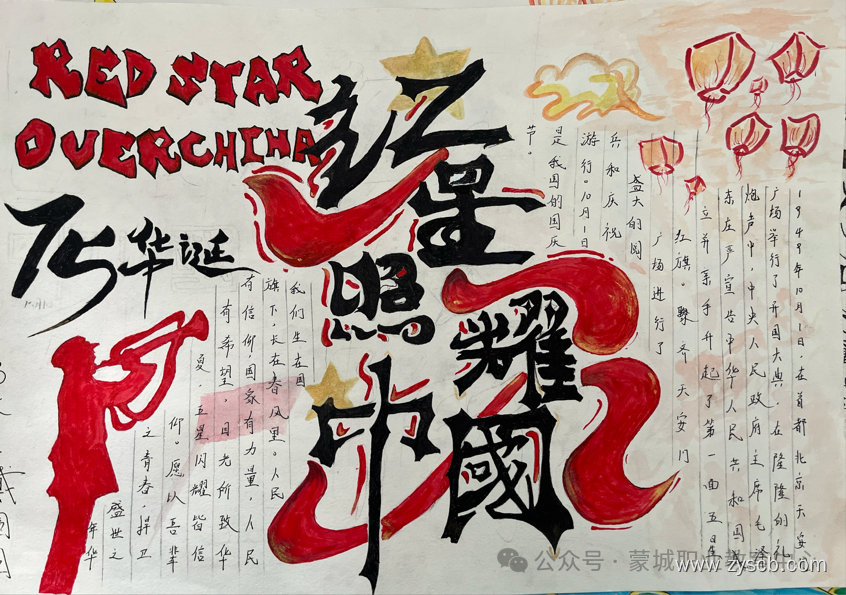 RED STAR
OVERCHINA
红星
照耀
中國
75华诞
1949年10月1日,在首都北京天安
广场举行了开国大典,在隆隆的礼
炮声中,中央人民政府主席毛泽
东庄严宣告中华人民共和国
立并亲手升起了第一面五星
红旗。聚齐天安门
广场进行了
盛大的阅
兵和庆祝
游行。10月1日
是我国的国庆
节。
我们生在国
旗下,长在春风里。人民
有信仰,国家有力量,人民
有希望。目光所致华
夏,五星闪耀皆信
仰。愿以吾辈
之青春,捍卫
盛世之
年华
公众号·蒙城职业教育中心
www.zyscb.com